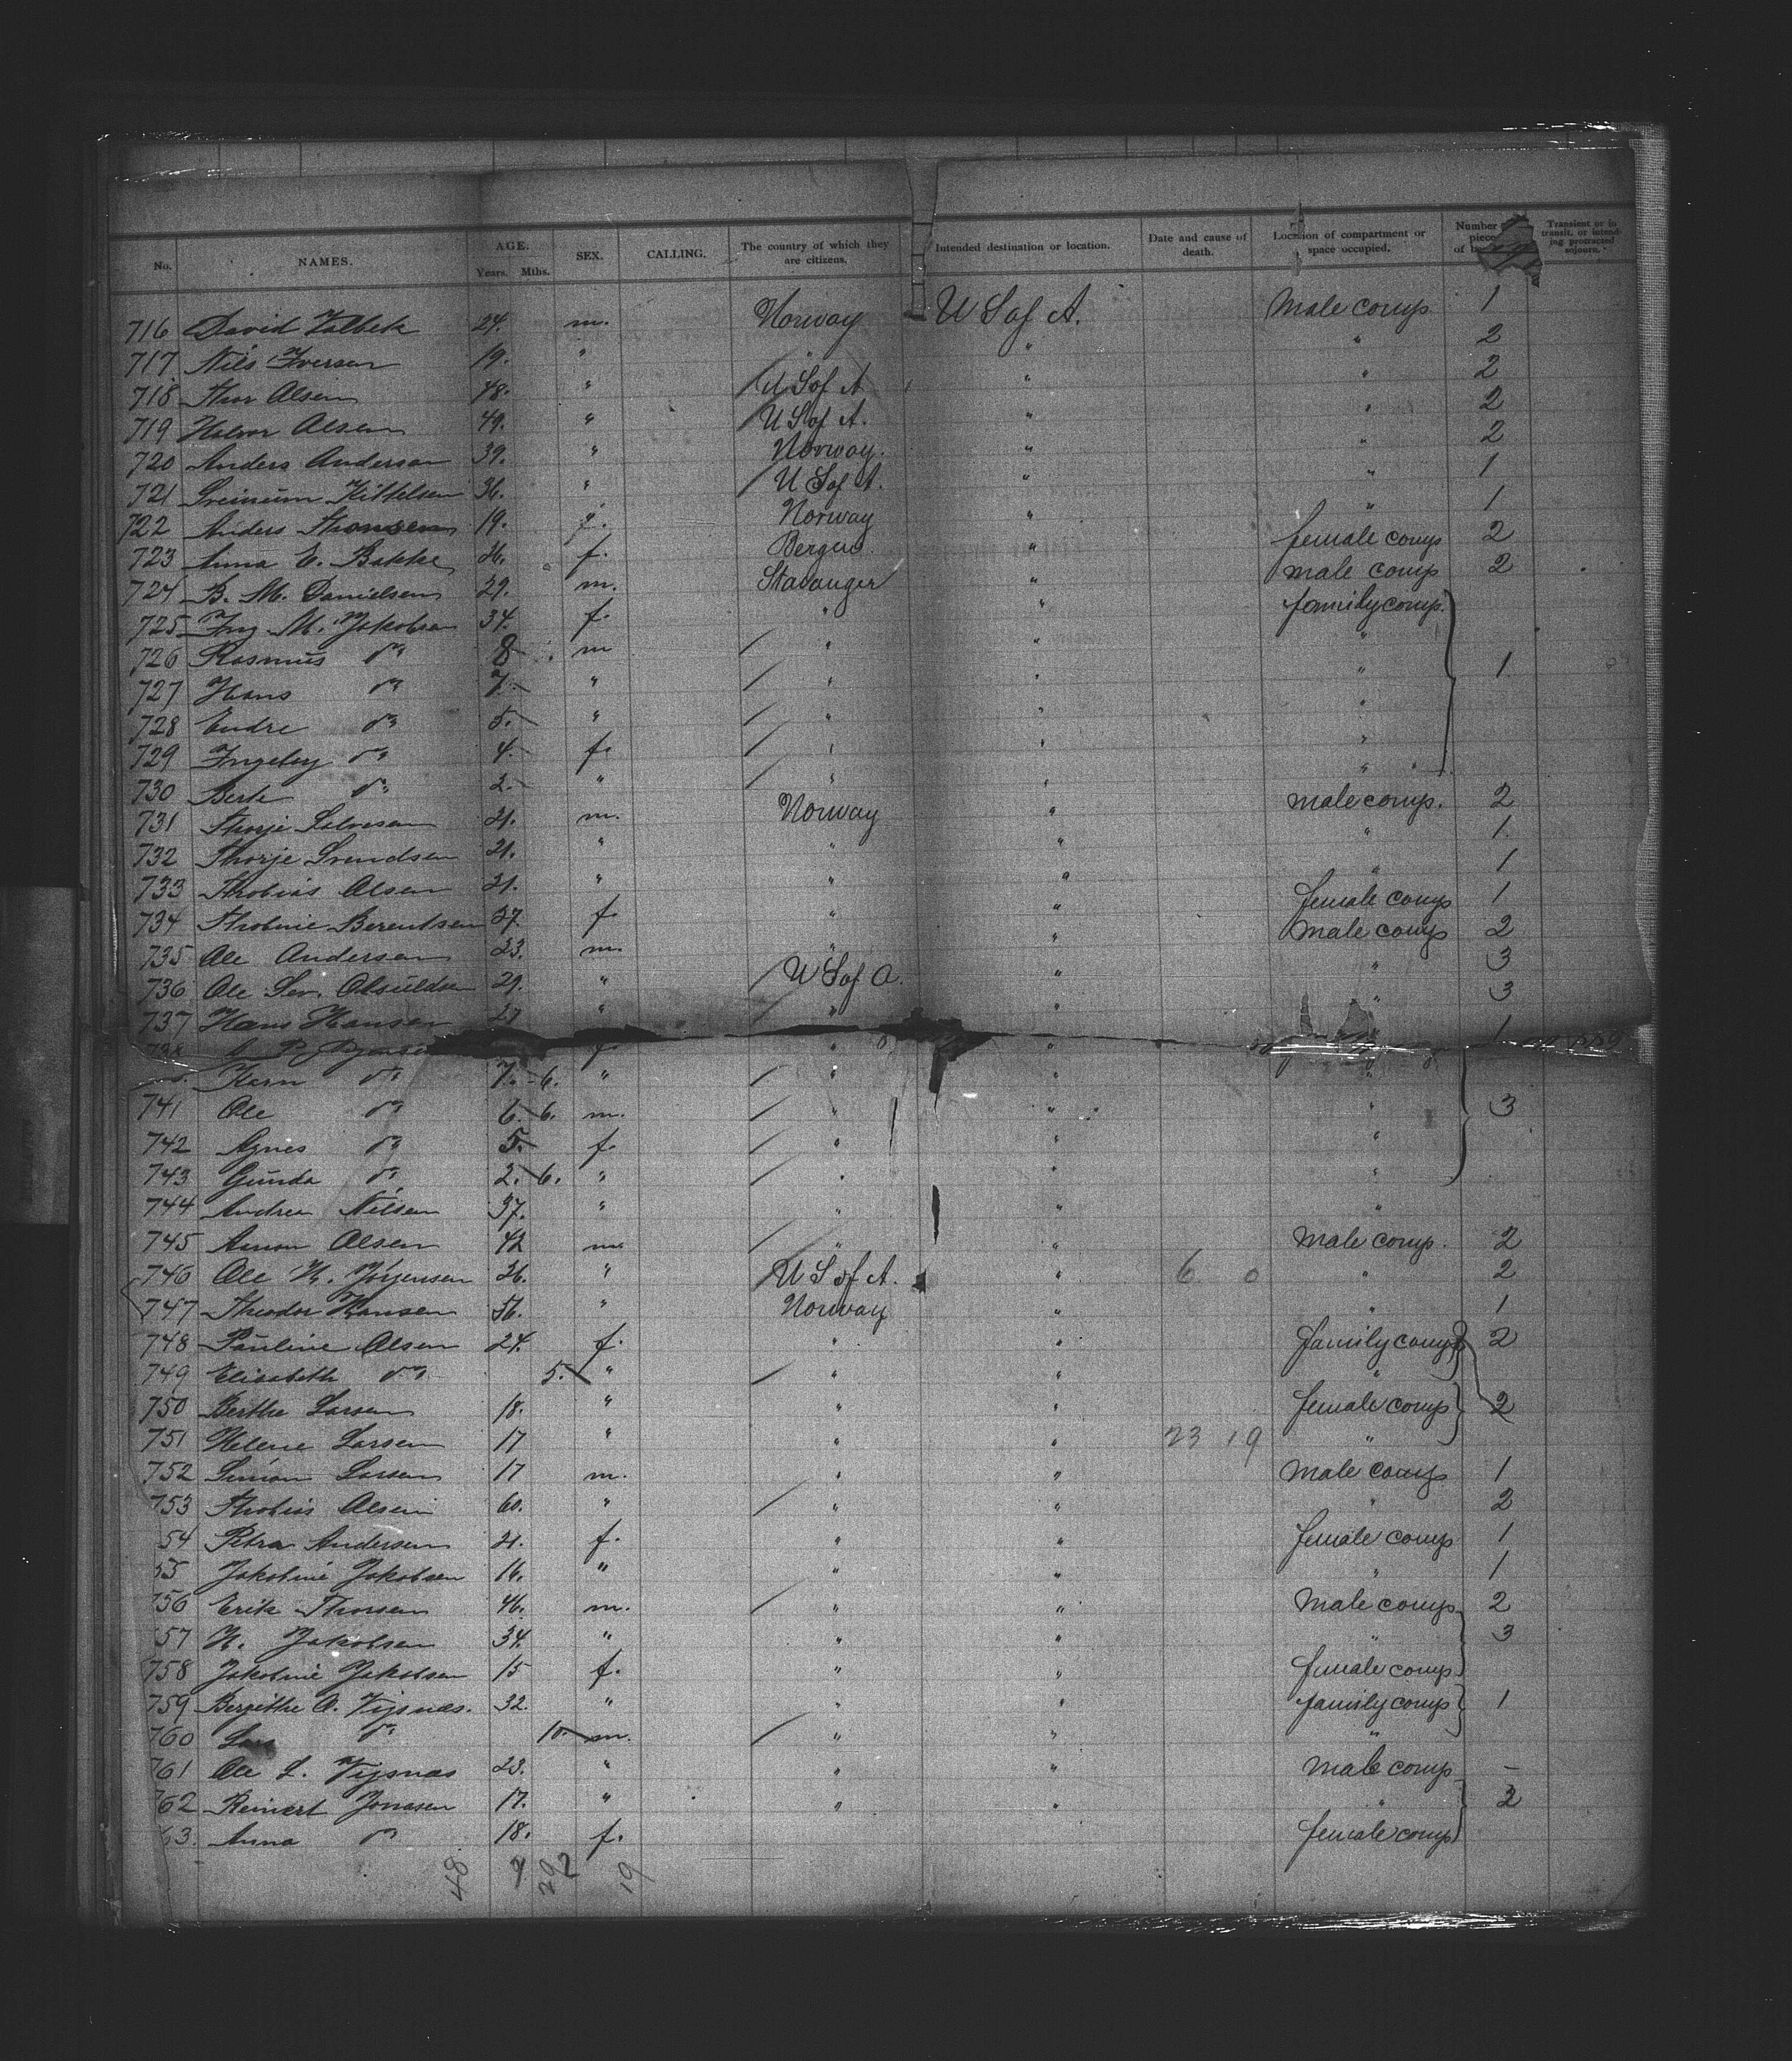 No. NAMES. AGE. Years. Mths. SEX. CALLING. The country of which they are citizens. Intended destination or location. Date and cause of death. Location of compartment or space occupied. Number piece of Transient or in transit, or intending protracted sojourn.
716 David 24. m. Norway U S of A. Male comp 1
717 Nils Iversen 19. " " " " 2
718 Thor Olsen 48. " U S of A " " 2
719 Halvor Olsen 49. " U S of A. " " 2
720 Anders Andersen 39. " Norway. " " 2
721 Kittelsen 36. " U S of A. " " 1
722 Anders 19. Norway " " 1
723 Anna E. Bakke 26. f. Bergen " female comp 2
724 B. M. Danielsen 29. m. Stavanger " male comp 2
725 Ing M. Jakobsen 34. f. " " family comp.
726 Rasmus do 8 m " " "
727 Hans do 7 " " " " 1
728 Endre do 5. " " " "
729 Ingebg do 4. f. " " "
730 Berte do 2. " " " "
731 Salvesen 21. m. Norway " male comp. 2
732 Thorje Svendsen 21. " " " " 1
733 Thobias Olsen 21. " " " " 1
734 Thobine Berentsen 27. f. " " female comp 1
735 Ole Andersen 23. m. " " Male comp 2
736 Ole 29. " U S of A. " " 3
737 Hans Hansen 27 " " " " 3
738 f. " " 1
Karn do 7. 6. " " " "
741 Ole do 6. 6. m. " " " 3
742 Agnes do 5. f. " " "
743 Gunda do 2. 6. " " " "
744 Andrea Nilsen 37. " " " "
745 Aanon Olsen 42 m. " " Male comp. 2
746 Ole N. Jörgensen 26. " U S of A. " 6 0 " 2
747 Theodor Hansen 56. " Norway " " 1
748 Pauline Olsen 24. f. " " family comp 2
749 Elisabeth do 5. " " " "
750 Berthe Larsen 18. " " " female comp 2
751 Helene Larsen 17 " " " 23 19 "
752 Simon Larsen 17 m. " " Male comp 1
753 Thobias Olsen 60. " " " " 2
54 Petra Andersen 21. f. " " female comp 1
55 Jakobine Jakobsen 16. " " " " 1
756 Erik Thorsen 46. m. " " Male comp 2
57 N. Jakobsen 34. " " " " 3
758 Jakobine Jakobsen 15 f. " " female comp
759 Bergithe O. Vigsnæs. 32. " " " family comp 1
760 Lars do 10. m. " " "
761 Ole L. Vigsnæs 23. " " " Male comp –
762 Reinert Jonasen 17. " " " " 2
63. Anna do 18. f. female comp
48 9 2 19